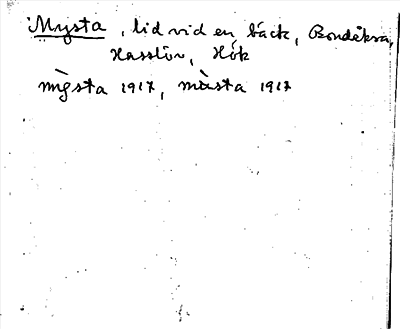 Mysta, lid vid en bäck, Bondåkra,
Hasslöv, Hök
mỳsta 1917, mùsta 1917